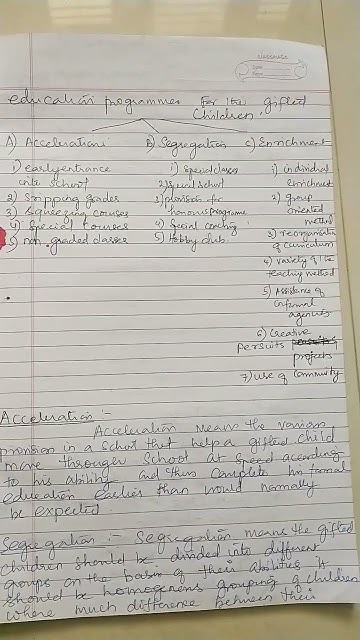 classmate
Date
Page
education programmes for the gifted
Children.
A) Acceleration
B) Segregation
C) Enrichment
1) early entrance
into school
2) Skipping grades
3) Squeezing courses
4) Special courses
5) non graded classes
1) Special classes
2) Special school
3) provision for
honours programe
4) Special coaching
5) Hobby club
1) individual
enrichment
2) group
oriented
method
3) reorganisation
of curriculum
4) variety of the
teaching method
5) Assistance of
informal
agencies
6) Creative
persuits
projects
7) use of Community
Acceleration :-
Acceleration means the various
provision in a school that help a gifted child
move through School at speed according
to his ability and thus complete his formal
education earlier than would normally
be expected
Segregation :- Segregation means the gifted
children should be divided into different
groups on the basis of their abilities It
should be homogenous grouping of children
where much difference between their